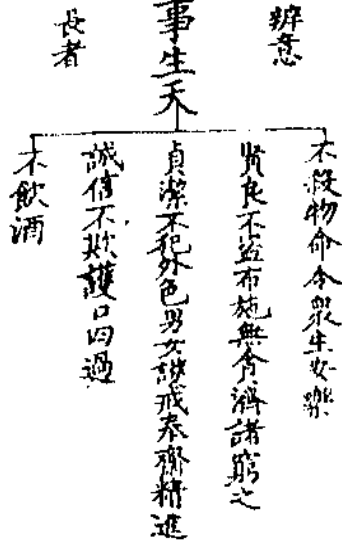 辨意
事生天
長者
不殺物命令衆生安樂
賢良不盜布施無貪濟諸窮乏
貞潔不犯外色男女護戒奉齋精進
誠信不欺護口四過
不飲酒